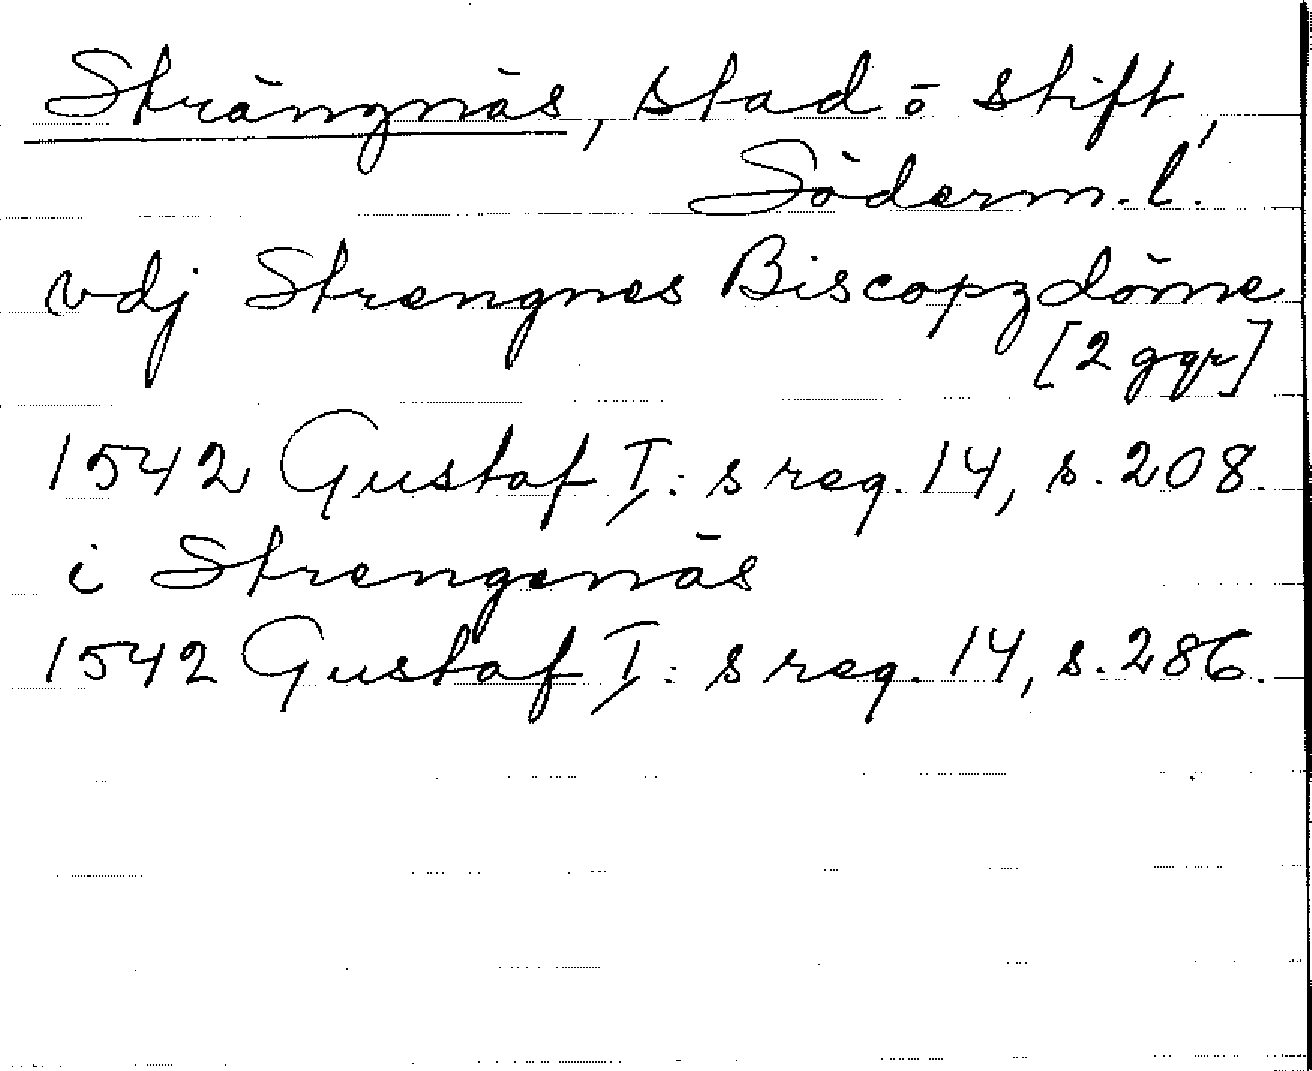 Strängnäs, stad o stift,
Söderm. l.
vdj Strengnes Biscopzdöme
[2 ggr]
1542 Gustaf I:s reg. 14, s. 208.
i Strengenäs
1542 Gustaf I:s reg. 14, s. 286.